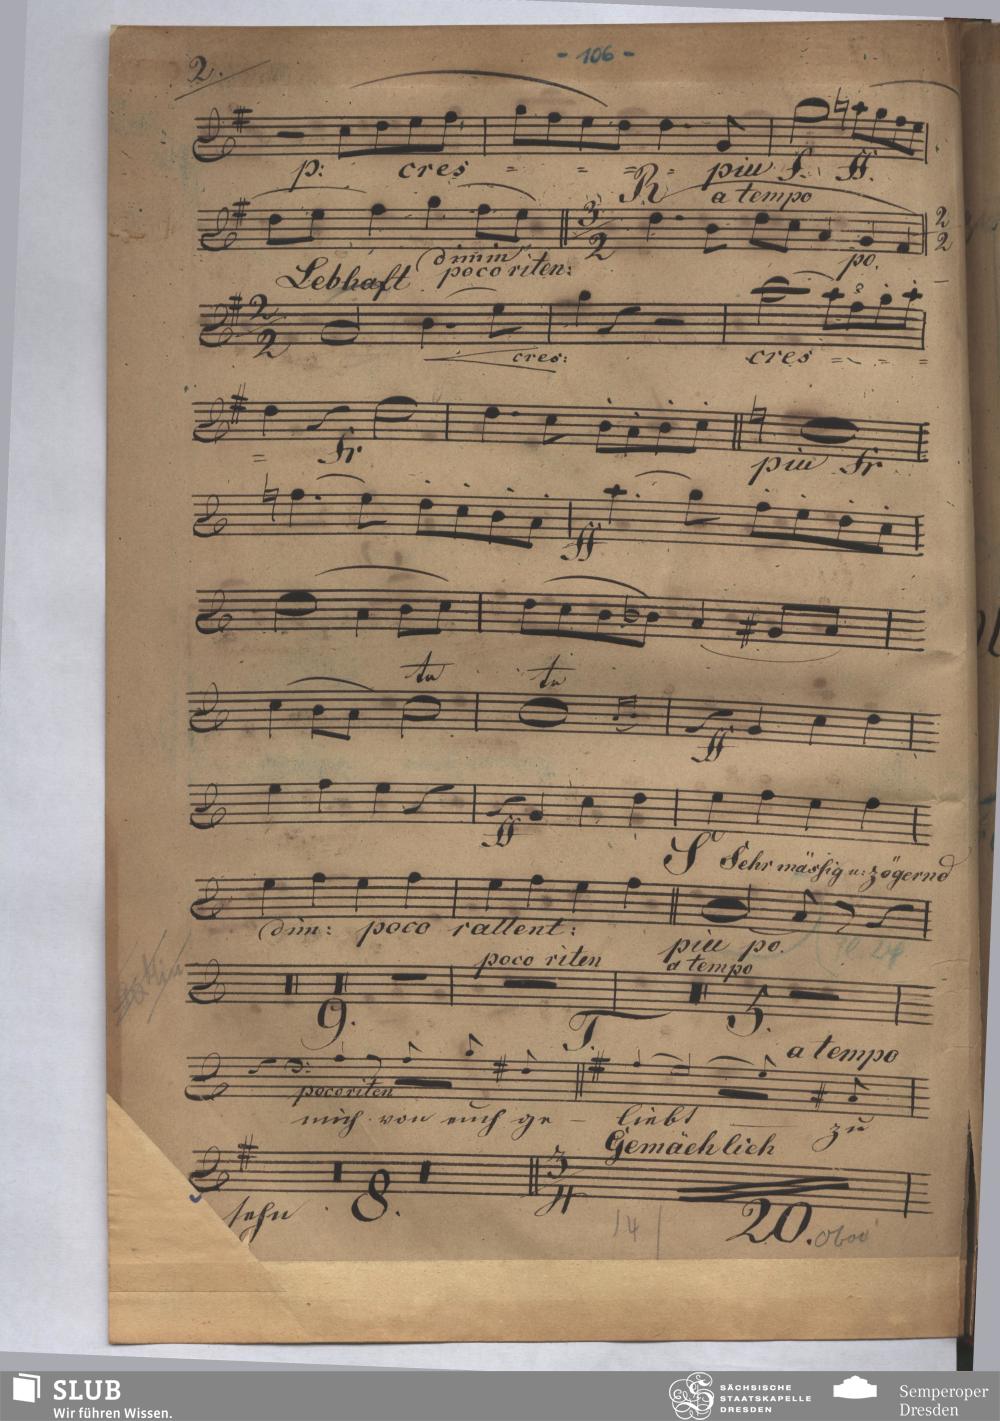 - 106 -
2.
p: cres = = = R = piu f. ff.
a tempo
3 2
2 2
dimin po.
Lebhaft poco riten:
2 2
cres: cres = = - =
= fr piu fr
ff
tr tr
ff
ff
S Sehr mässig u: zögernd
dim: poco rallent: piu po.
poco riten a tempo
9. T. 5.
a tempo
poco riten
mich von euch ge - liebt zu
Gemächlich
3 4
sehn 8. 14 20. Oboe
SLUB
Wir führen Wissen.
SÄCHSISCHE
STAATSKAPELLE
DRESDEN
Semperoper
Dresden